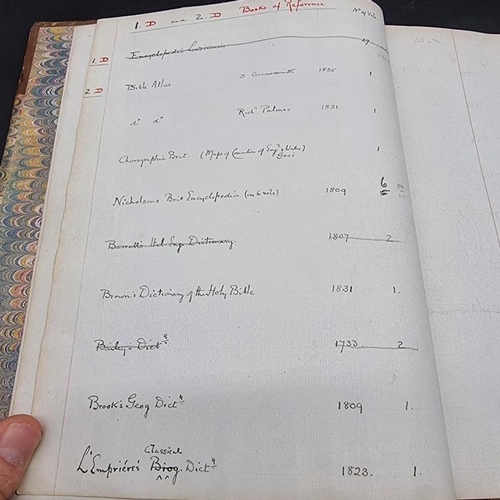 1. D and 2 D Books of Reference No of Vols
1. D Encyclopedia 27
2 D
Bible Atlas 1835 1
do do Richd Palmer 1831 1
Chorographia Brit (Maps of Counties of Engd & Wales) 1
Nicholsons Brit Encyclopedia (in 6 vols) 1809 6
Dictionary 1807 2
Brown's Dictionary of the Holy Bible 1831 1.
Bailey's Dicty 1733 2
Brook's Geog Dicty 1809 1.
Classical
L'Emprière's Biog. Dicty 1823. 1.